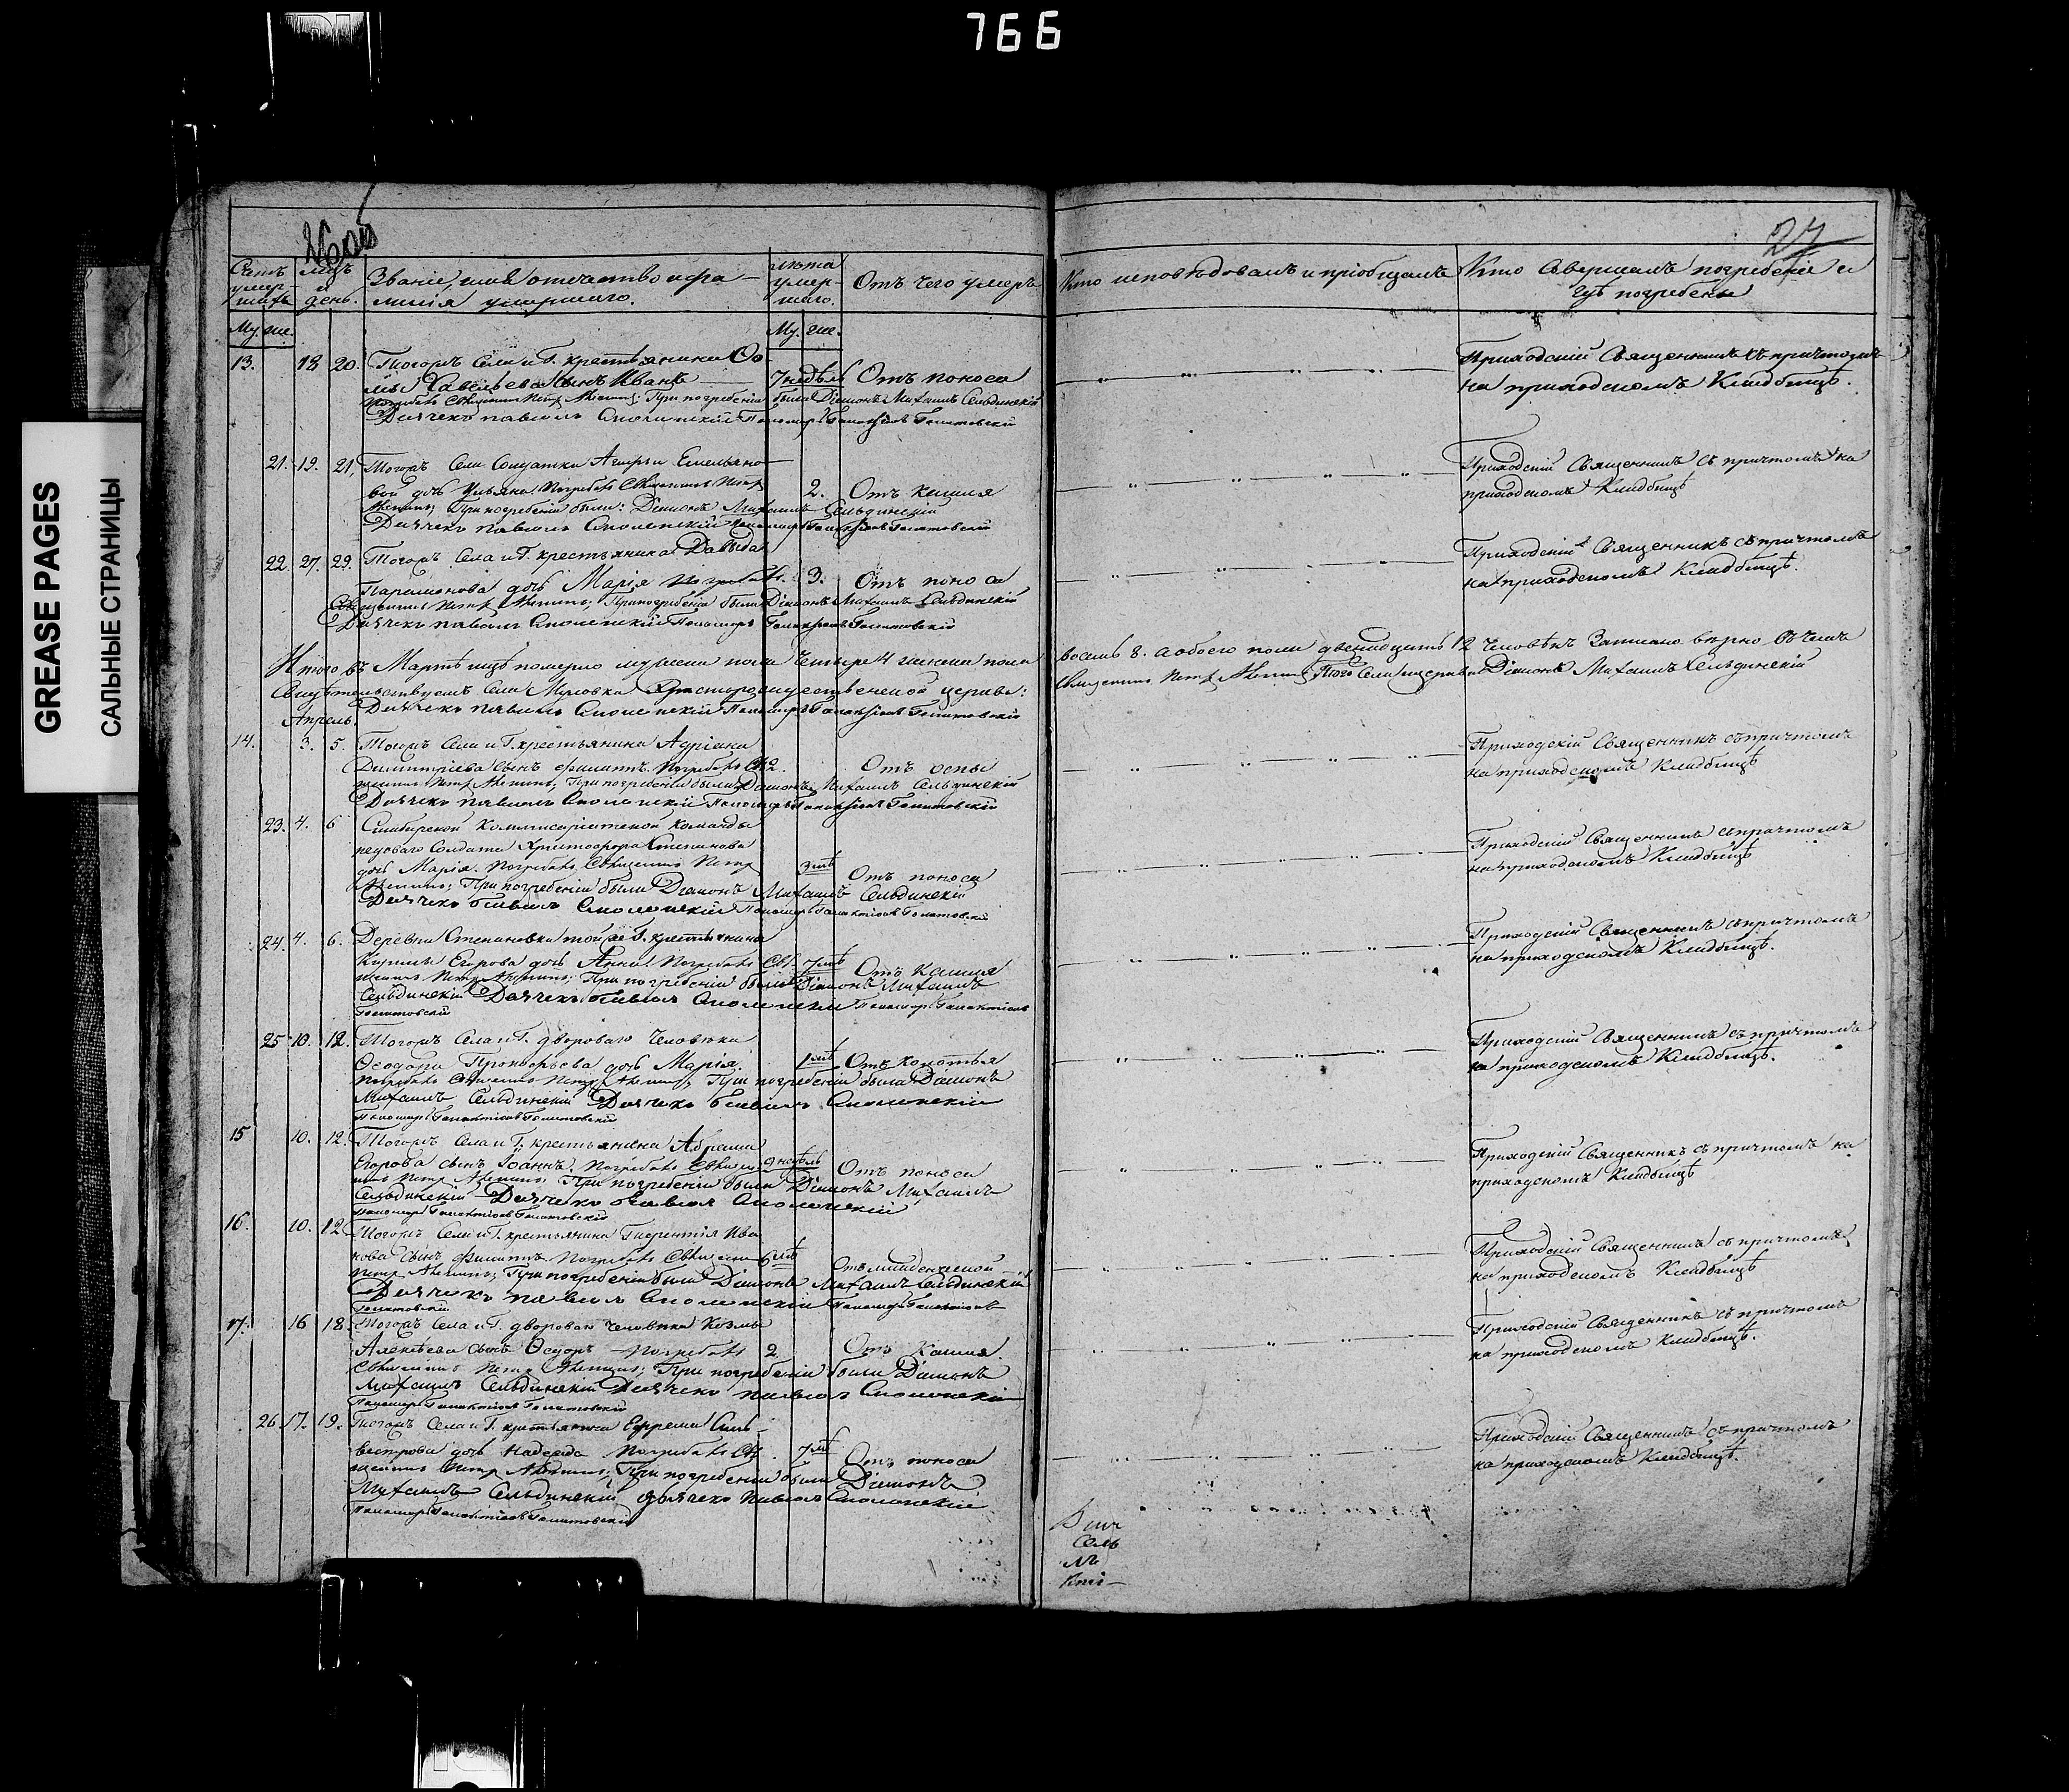 766
GREASE PAGES
САЛЬНЫЕ СТРАНИЦЫ
27
Счетъ умершихъ
мцъ и день.
Званіе, имя отечество и фамилія умершаго.
лѣта умершаго.
Отъ чего умеръ
Кто исповѣдовалъ и пріобщалъ
Кто совершалъ погребеніе и гдѣ погребены
Му. же.
Му. же.
13. 18 20. Тогожъ Села и Г. крестьянина Ѳо-
мы Савельева сынъ Иванъ 7 недѣль Отъ поноса
Погребалъ Священникъ Петръ При погребеніи были Діаконъ Михаилъ Сельдинскій
Дьячекъ Павелъ Смоленскій Пономарь Галактіонъ
Приходскій Священникъ съ причтомъ
на приходскомъ Кладбищѣ.
21. 19. 21. Тогожъ Села Солдатки Агафьи Емельяно-
вой дочь Ульяна Погребалъ Священникъ Петръ 2. Отъ кашля
При погребеніи были: Діаконъ Михаилъ Сельдинскій
Дьячекъ Павелъ Смоленскій Пономарь Галактіонъ
Приходскій Священникъ съ причтомъ на
приходскомъ Кладбищѣ
22. 27. 29. Тогожъ Села и Г. крестьянина Давыда
Парамонова дочь Марія Погребалъ 3. Отъ поноса
Священникъ Петръ При погребеніи были Діаконъ Михаилъ Сельдинскій
Дьячекъ Павелъ Смоленскій Пономарь Галактіонъ
Приходскій Священникъ съ причтомъ
на приходскомъ Кладбищѣ.
Итого въ Мартѣ мцѣ померло мужеска пола четыре 4 женска пола восемь 8. а обоего пола двенадцать 12 человѣкъ Записано вѣрно въ чемъ
Свидѣтельствуемъ Села Христорождественской церкви: Священникъ Петръ Того Села и церкви Діаконъ Михаилъ Сельдинскій
Дьячекъ Павелъ Смоленскій Пономарь Галактіонъ
Апрель.
14. 3. 5. Тогожъ Села и Г. крестьянина Адріана
Димитріева сынъ Филатъ. Погребалъ Свя- 2. Отъ оспы
щенникъ Петръ При погребеніи были Діаконъ Михаилъ Сельдинскій
Дьячекъ Павелъ Смоленскій Пономарь Галактіонъ
Приходскій Священникъ съ причтомъ
на приходскомъ Кладбищѣ
23. 4. 6 Симбирской Коммисаріатской команды
рядоваго Солдата Христофора Степанова
дочь Марія. Погребалъ Священникъ Петръ 3 лѣтъ Отъ поноса
При погребеніи были Діаконъ Михаилъ Сельдинскій
Дьячекъ Павелъ Смоленскій Пономарь Галактіонъ
Приходскій Священникъ съ причтомъ
на приходскомъ Кладбищѣ
24. 4. 6. Деревни Степановки той же Г. крестьянина
Егорова дочь Анна. Погребалъ Свя- 7 лѣтъ Отъ Кашля
щенникъ Петръ При погребеніи были Діаконъ Михаилъ
Сельдинскій Дьячекъ Павелъ Смоленскій Пономарь Галактіонъ
Приходскій Священникъ съ причтомъ
на приходскомъ Кладбищѣ.
25. 10. 12. Тогожъ Села и Г. двороваго Человѣка
Ѳеодора Прокофьева дочь Марія. Отъ Колотья
Погребалъ Священникъ Петръ При погребеніи были Діаконъ
Михаилъ Сельдинскій Дьячекъ Павелъ Смоленскій
Пономарь Галактіонъ
Приходскій Священникъ съ причтомъ
на приходскомъ Кладбищѣ.
15 10. 12. Тогожъ Села и Г. крестьянина Абрама
Егорова сынъ Іоаннъ. Погребалъ Священ- 9 недѣль Отъ поноса
никъ Петръ При погребеніи были Діаконъ Михаилъ
Сельдинскій Дьячекъ Павелъ Смоленскій
Пономарь Галактіонъ
Приходскій Священникъ съ причтомъ на
приходскомъ Кладбищѣ
16. 10. 12 Тогожъ Села и Г. крестьянина Ива-
нова сынъ Филиппъ Погребалъ Священ- 6 Отъ младенческой
Петръ При погребеніи были Діаконъ Михаилъ Сельдинскій
Дьячекъ Павелъ Смоленскій Пономарь Галактіонъ
Приходскій Священникъ съ причтомъ
на приходскомъ Кладбищѣ
17. 16 18. Тогожъ Села и Г. двороваго человѣка Козмы
Алексѣева сынъ Ѳедоръ Погребалъ 2 Отъ Кашля.
Священникъ Петръ При погребеніи были Діаконъ
Михаилъ Сельдинскій Дьячекъ Павелъ Смоленскій
Пономарь Галактіонъ
Приходскій Священникъ съ причтомъ
на приходскомъ Кладбищѣ.
26. 17. 19. Тогожъ Села и Г. крестьянина Ефрема Сель-
вестрова дочь Надежда Погребалъ Свя- 7 лѣтъ Отъ поноса
щенникъ Петръ При погребеніи были Діаконъ
Михаилъ Сельдинскій Дьячекъ Павелъ Смоленскій
Пономарь Галактіонъ
Приходскій Священникъ съ причтомъ
на приходскомъ Кладбищѣ.